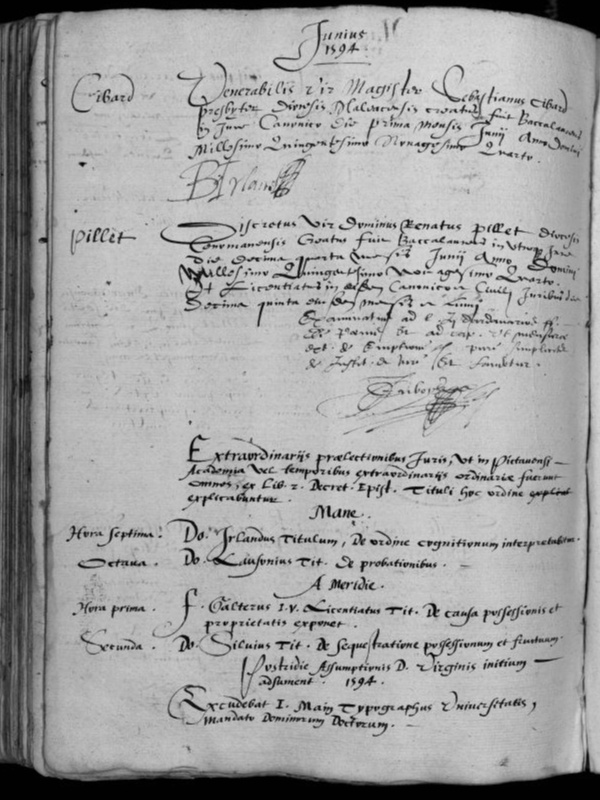 Junius
1594
Cibard
Venerabilis vir Magister Sebastianus Cibard
presbyter diocesis Maleacensis creatus fuit Baccalaureus
in Jure Canonico die prima mensis Junij Anno Domini
Millesimo Quingentesimo Nonagesimo Quarto.
Pillet
Discretus vir Dominus Renatus Pillet diocesis
Cenomanensis Creatus fuit Baccalaureus in utroque Jure
die decima quarta mensis Junij Anno Domini
Millesimo Quingentesimo Nonagesimo Quarto.
Et Licentiatus in Canonico et Civili Juribus die
Decima quinta mensis Junij
Examinatus ad l.
et ad cap.
ext. de
Extraordinarijs prælectionibus Juris, ut in Pictavensi
Academia vel temporibus extraordinarijs ordinariæ fuerunt
omnes, ex Lib. 2. Decret. Epist. Tituli hoc ordine
explicabuntur.
Mane.
Hora septima. Do. Irlandus Titulum, De ordine cognitionum interpretabitur.
Octava. Do. Lausonius Tit. de probationibus.
A Meridie.
Hora prima. F. Galterus I.V. Licentiatus Tit. De causa possessionis et
proprietatis exponet.
Secunda. Do. Silvius Tit. De sequestratione possessionum et fructuum.
Postridie Assumptionis D. Virginis initium
adsument. 1594.
Excudebat I. Main Typographus Universitatis,
mandato Dominorum Doctorum.